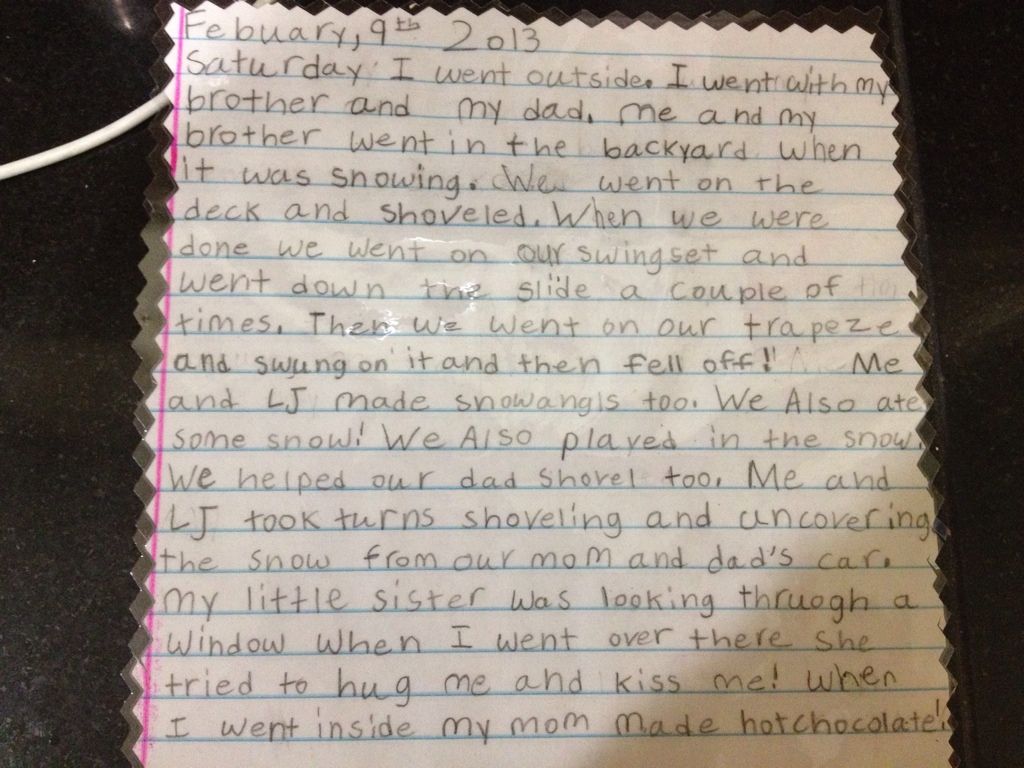 Febuary, 9th 2013
Saturday I went outside. I went with my
brother and my dad. Me and my
brother went in the backyard when
it was snowing. We went on the
deck and shoveled. When we were
done we went on our swingset and
went down the slide a couple of
times. Then we went on our trapeze
and swung on it and then fell off!! Me
and LJ made snowangls too. We Also ate
some snow! We Also played in the snow.
We helped our dad shovel too. Me and
LJ took turns shoveling and uncovering
the snow from our mom and dad's car.
My little sister was looking thruogh a
window when I went over there she
tried to hug me and kiss me! When
I went inside my mom made hotchocolate!